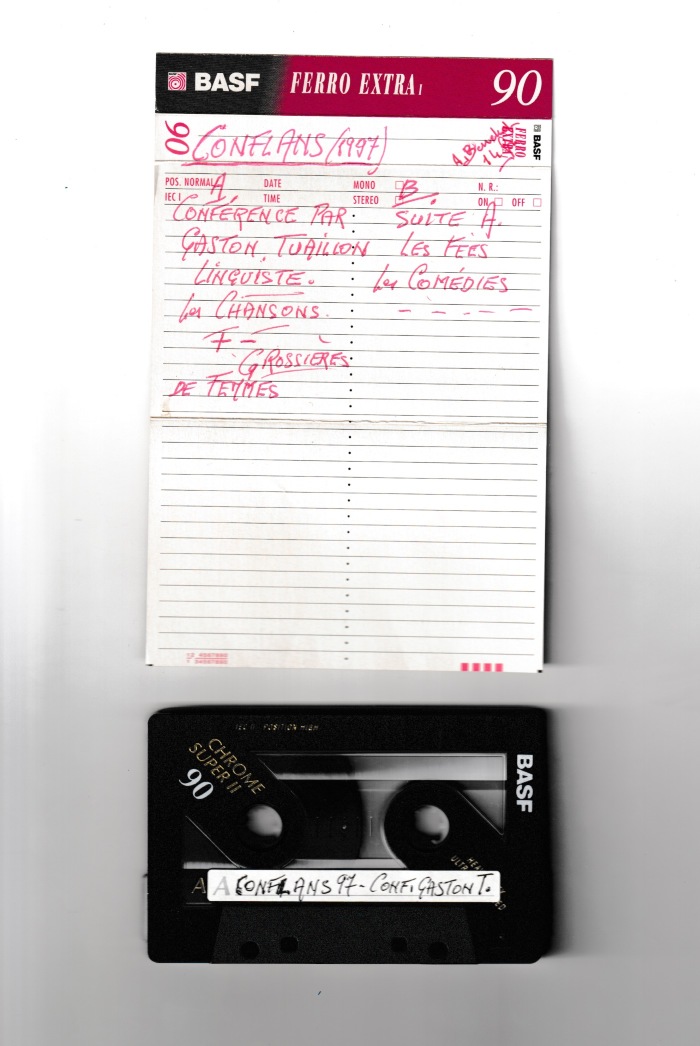 BASF FERRO EXTRA I 90
90 CONFLANS (1997)
FERRO EXTRA I BASF
POS. NORMAL A. DATE MONO B. N. R.:
IEC I TIME STEREO ON OFF
CONFÉRENCE PAR
GASTON. TUAILLON
LINGUISTE.
Les CHANSONS.
GROSSIERES
DE FEMMES
SUITE A.
LES FÉES
Les COMÉDIES
IEC II POSITION HIGH
CHROME
SUPER II
90
BASF
A A CONFLANS 97 - CONF. GASTON T.